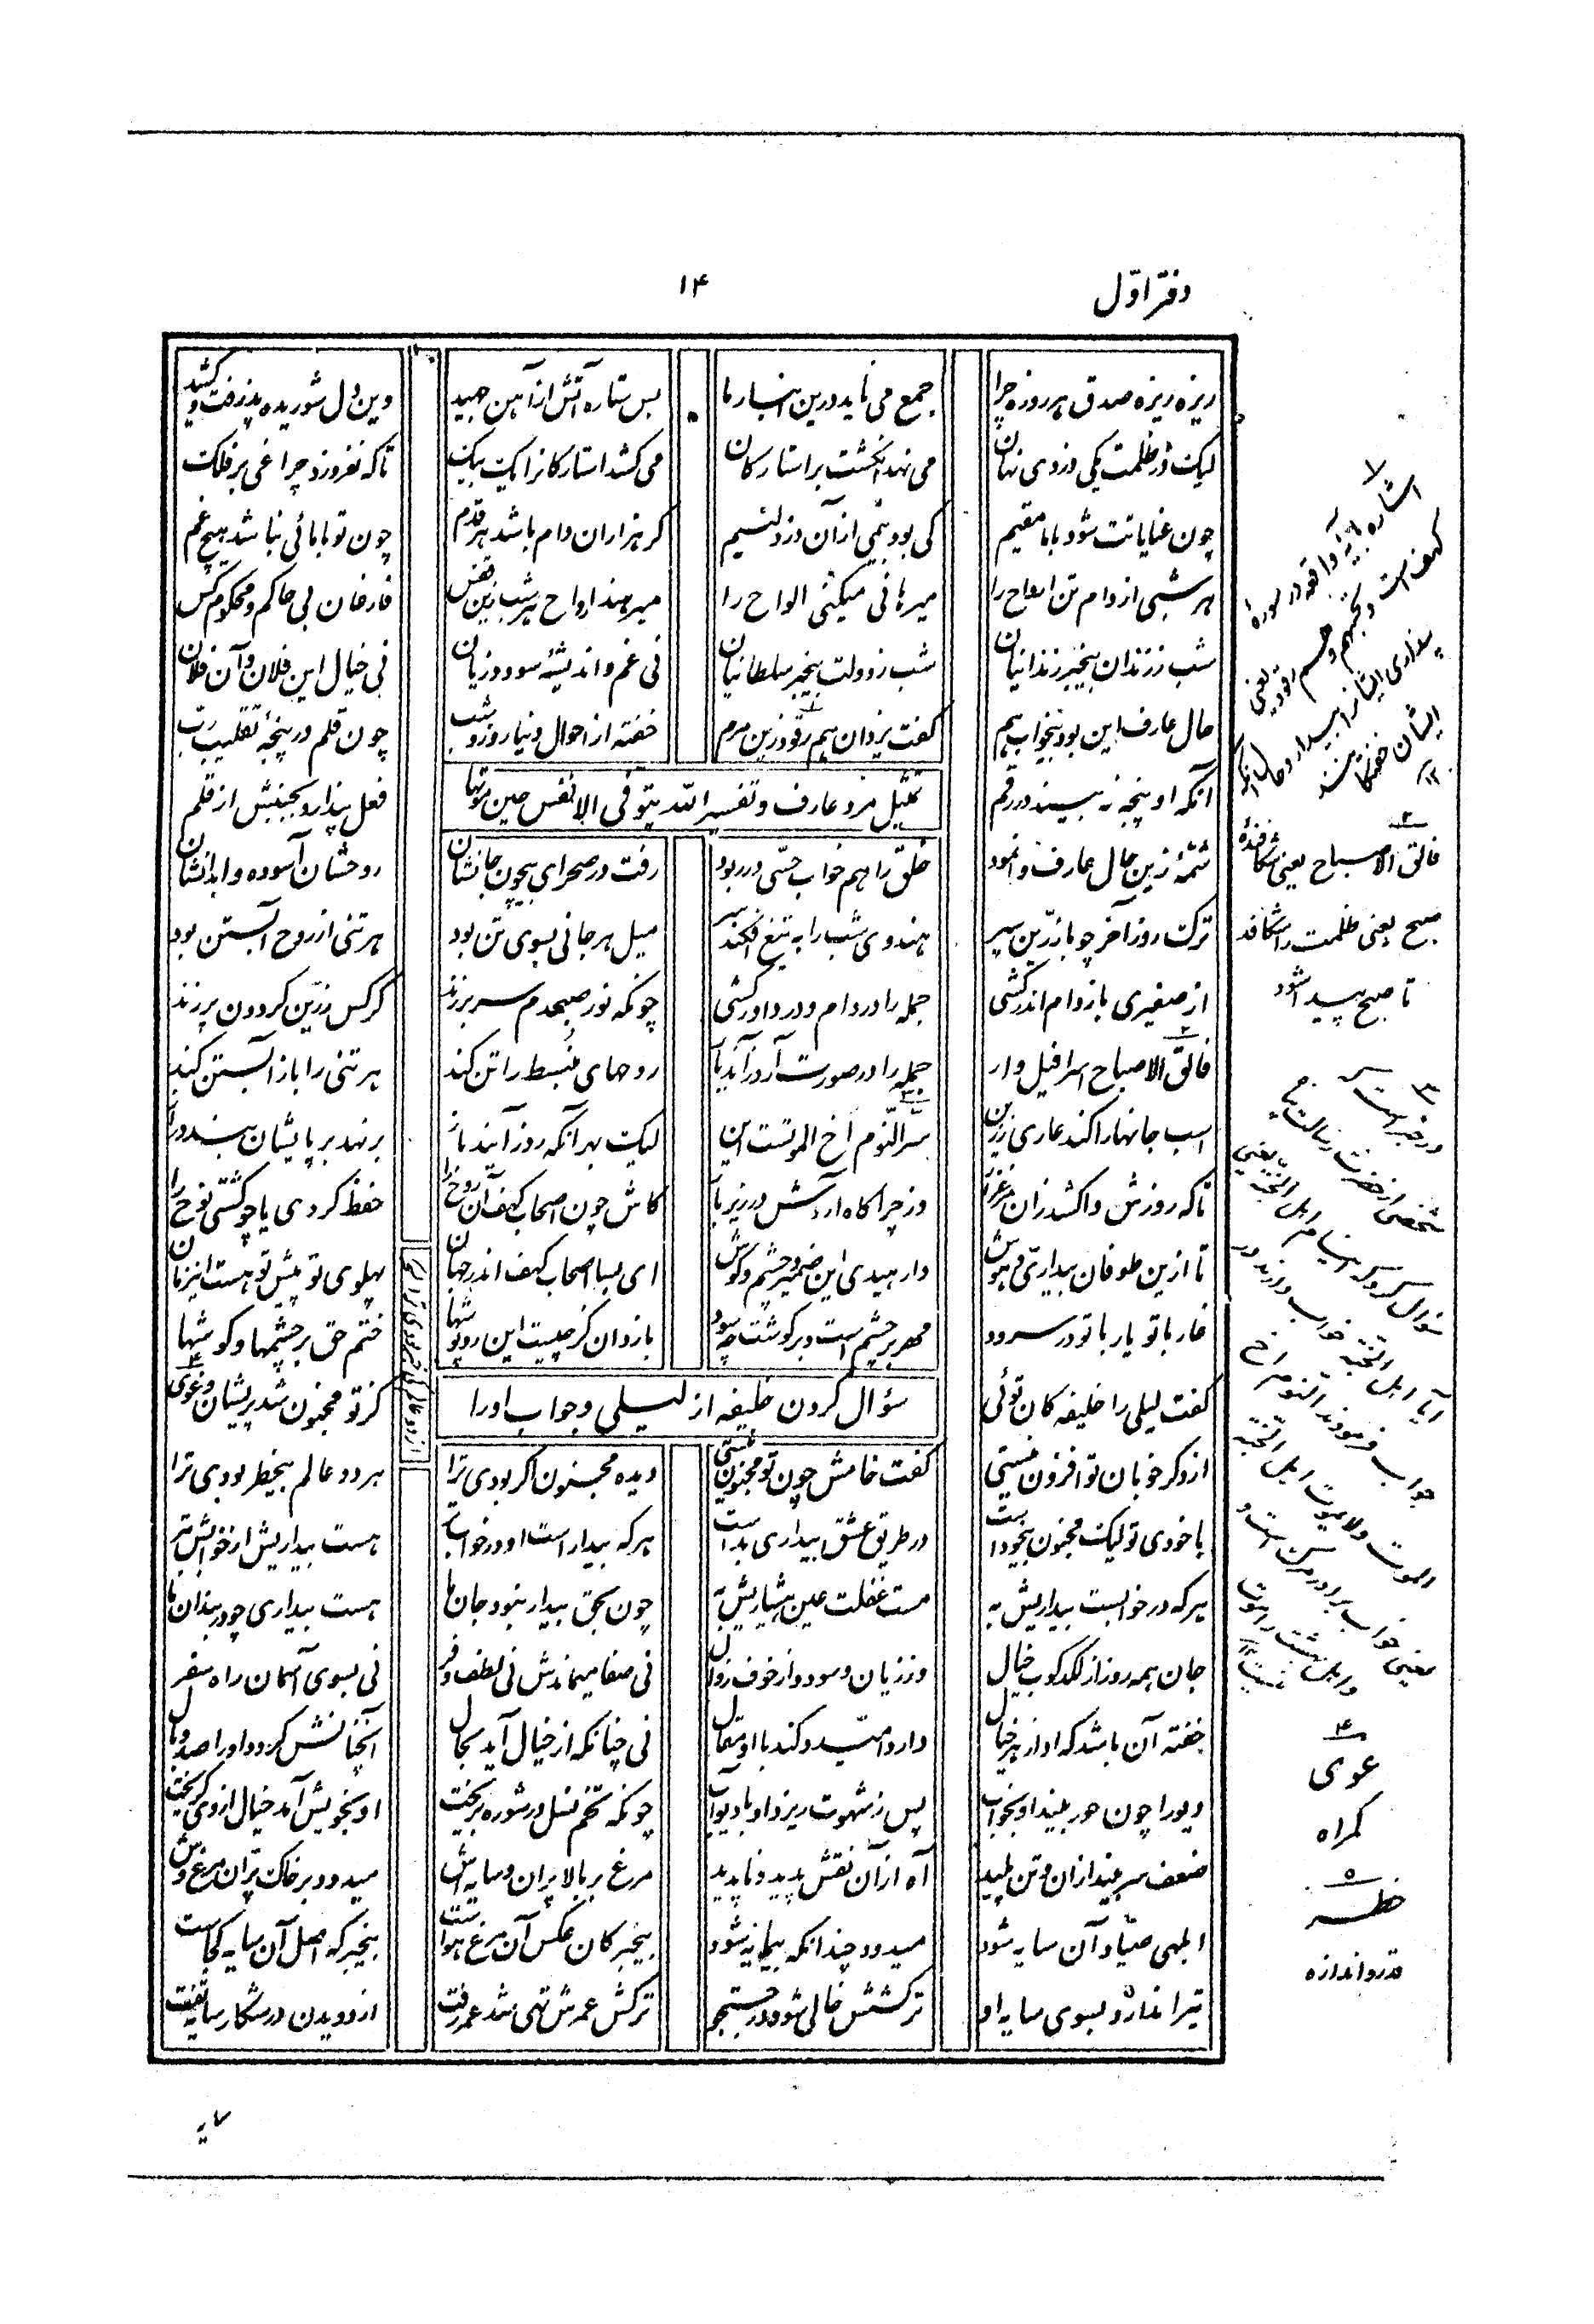 دفتر اوّل
۱۴
ریزه ریزه صدق هر روزه چرا جمع می ناید درین انبار ما بس ستاره آتش از آهن جهید وین دل شوریده پذرفت و کشید
لیک در ظلمت یکی دزدی نهان می نهد انگشت بر استارگان می کشد استارگانرا یک بیک تا که نفروزد چراغی بر فلک
چون عنایاتت شود با ما مقیم کی بود بیمی از آن دزد لئیم گر هزاران دام باشد هر قدم چون تو با مائی نباشد هیچ غم
هر شبی از دام تن ارواح را میرهانی میکنی الواح را میرهند ارواح هر شب زین قفس فارغان نی حاکم و محکوم کس
شب ز زندان بیخبر زندانیان شب ز دولت بیخبر سلطانیان نی غم و اندیشهٔ سود و زیان نی خیال این فلان و آن فلان
حال عارف این بود بیخواب هم گفت یزدان هم رقود زین مرم خفته از احوال دنیا روز و شب چون قلم در پنجهٔ تقلیب رب
آنکه او پنجه نه بیند در رقم تمثیل مرد عارف و تفسیر الله یتوفی الانفس حین موتها فعل پندارد بجنبش از قلم
شمهٔ زین حال عارف وانمود خلق را هم خواب حسّی در ربود رفت در صحرای بیچون جانشان روحشان آسوده و ابدانشان
ترک روز آخر چو با زرّین سپر هندوی شب را به تیغ افکند سر میل هر جانی بسوی تن بود هر تنی از روح آبستن بود
از صفیری باز دام اندر کشی جمله را در دام و در داور کشی چونکه نور صبحدم سر بر زند کرکس زرّین گردون پر زند
فالق الاصباح اسرافیل وار جمله را در صورت آرد زآن دیار روحهای منبسط را تن کند هر تنی را باز آبستن کند
اسب جانها را کند عاری ز زین سرّ النّوم اخ الموتست این لیک بهر آنکه روز آیند باز بر نهد بر پایشان بند دراز
تا که روزش واکشد زان مرغزار وز چراگاه آردش در زیر بار کاش چون اصحاب کهف آن روح را حفظ کردی یا چو کشتی نوح را
تا ازین طوفان بیداری و هوش وارهیدی این ضمیر و چشم و گوش ای بسا اصحاب کهف اندر جهان پهلوی تو پیش تو هست این زمان
غار با تو یار با تو در سرود مهر بر چشم است و بر گوشت چه سود بازدان کز چیست این روپوشها ختم حق بر چشمها و گوشها
گفت لیلی را خلیفه کان توئی سؤال کردن خلیفه از لیلی و جواب او را کز تو مجنون شد پریشان و غوی
از دگر خوبان تو افزون نیستی گفت خامش چون تو مجنون نیستی دیده مجنون اگر بودی ترا هر دو عالم بیخطر بودی ترا
با خودی تو لیک مجنون بیخود است در طریق عشق بیداری بد است هر که بیدار است او در خواب تر هست بیداریش از خوابش بتر
هر که در خوابست بیداریش به مست غفلت عین هشیاریش به چون بحق بیدار نبود جان ما هست بیداری چو در بندان ما
جان همه روز از لگدکوب خیال وز زیان و سود و از خوف زوال نی صفا میماندش نی لطف و فر نی بسوی آسمان راه سفر
خفته آن باشد که او از هر خیال دارد امّید و کند با او مقال نی چنانکه از خیال آید بحال آنخیالش گردد او را صد وبال
دیو را چون حور بیند او بخواب پس ز شهوت ریزد او با دیو آب چونکه تخم نسل در شوره بریخت او بخویش آمد خیال از وی گریخت
ضعف سر بیند از ان و تن پلید آه از آن نقش پدید و ناپدید مرغ بر بالا پران و سایه‌اش میدود بر خاک پرّان مرغ وش
ابلهی صیّاد آن سایه شود میدود چندانکه بیمایه شود بیخبر کان عکس آن مرغ هواست بیخبر که اصل آن سایه کجاست
تیر اندازد بسوی سایه او ترکشش خالی شود در جستجو ترکش عمرش تهی شد عمر رفت از دویدن در شکار سایه تفت
اشاره بآیه واقعه در سورهٔ
کهف است و تحسبهم رقود یعنی
پنداری ایشانرا بیدار و حال آنکه
ایشان خفتگانند
۱۲
۲
فالق الاصباح یعنی شکافندهٔ
صبح یعنی ظلمت را شکافد
تا صبح پیدا شود
۳
در خبر است که
شخصی از حضرت رسالت
سؤال کرد که
جواب فرمودند النّوم اخ
الموت ولا یموت اهل الجنّة
یعنی خواب برادر مرگ است و
و اهل بهشت را موت
نیست ۱۲
۴
غوی
گمراه
۵
خطر
قدر و اندازه
سایه